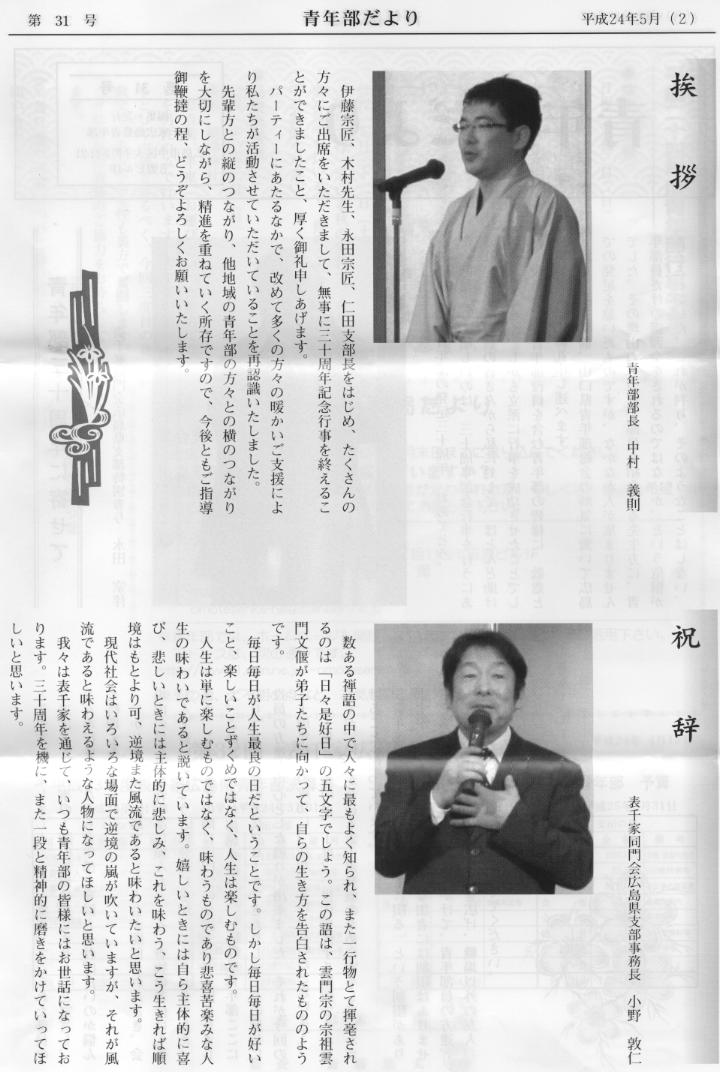 第 31 号
青年部だより
平成24年5月(2)
挨拶
青年部部長 中村 義則
伊藤宗匠、木村先生、永田宗匠、仁田支部長をはじめ、たくさんの
方々にご出席をいただきまして、無事に三十周年記念行事を終えるこ
とができましたこと、厚く御礼申しあげます。
パーティーにあたるなかで、改めて多くの方々の暖かいご支援によ
り私たちが活動させていただいていることを再認識いたしました。
先輩方との縦のつながり、他地域の青年部の方々との横のつながり
を大切にしながら、精進を重ねていく所存ですので、今後ともご指導
御鞭撻の程、どうぞよろしくお願いいたします。
祝辞
表千家同門会広島県支部事務長 小野 敦仁
数ある禅語の中で人々に最もよく知られ、また一行物とて揮毫され
るのは「日々是好日」の五文字でしょう。この語は、雲門宗の宗祖雲
門文偃が弟子たちに向かって、自らの生き方を告白されたもののよう
です。
毎日毎日が人生最良の日だということです。しかし毎日毎日が好い
こと、楽しいことずくめではなく、人生は楽しむものです。
人生は単に楽しむものではなく、味わうものであり悲喜苦楽みな人
生の味わいであると説いています。嬉しいときには自ら主体的に喜
び、悲しいときには主体的に悲しみ、これを味わう、こう生きれば順
境はもとより可、逆境また風流であると味わいたいと思います。
現代社会はいろいろな場面で逆境の嵐が吹いていますが、それが風
流であると味わえるような人物になってほしいと思います。
我々は表千家を通じて、いつも青年部の皆様にはお世話になってお
ります。三十周年を機に、また一段と精神的に磨きをかけていってほ
しいと思います。